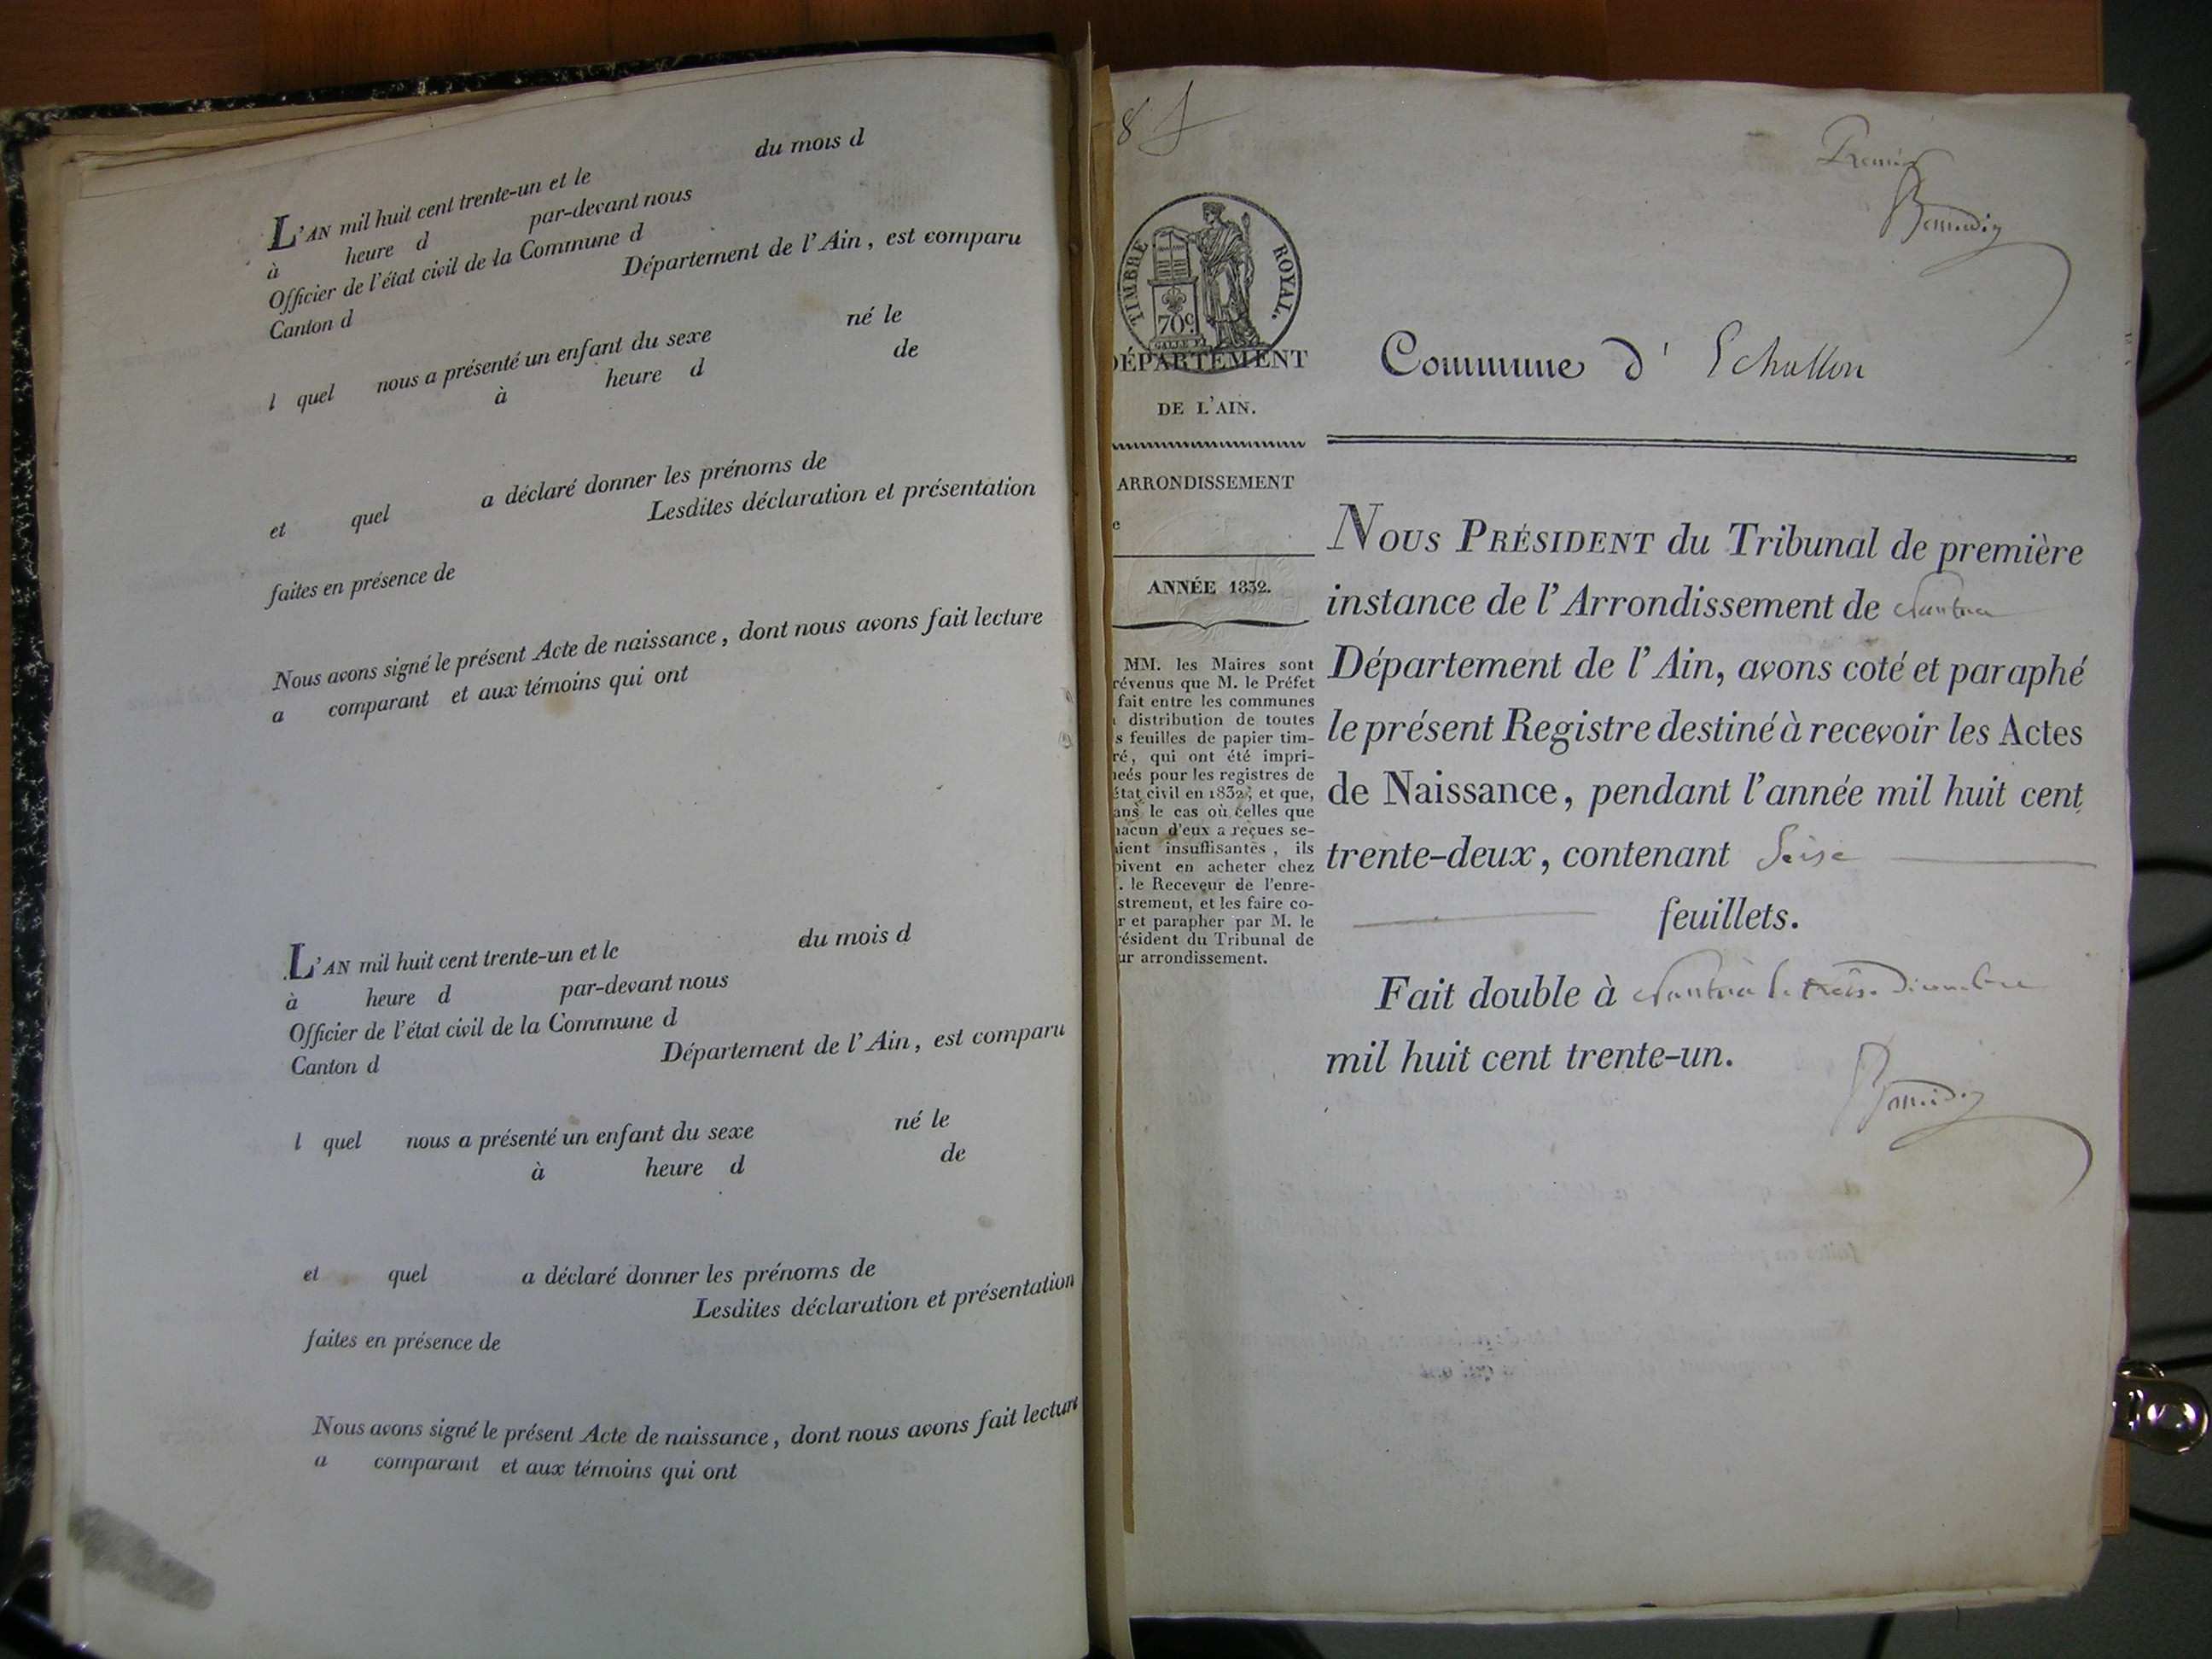 du mois d
L'AN mil huit cent trente-un et le
à heure d par-devant nous
Officier de l'état civil de la Commune d
Canton d Département de l'Ain, est comparu
né le
l quel nous a présenté un enfant du sexe
à heure d de
a déclaré donner les prénoms de
et quel Lesdites déclaration et présentation
faites en présence de
Nous avons signé le présent Acte de naissance, dont nous avons fait lecture
a comparant et aux témoins qui ont
L'AN mil huit cent trente-un et le du mois d
à heure d par-devant nous
Officier de l'état civil de la Commune d
Canton d Département de l'Ain, est comparu
l quel nous a présenté un enfant du sexe né le
à heure d de
et quel a déclaré donner les prénoms de
Lesdites déclaration et présentation
faites en présence de
Nous avons signé le présent Acte de naissance, dont nous avons fait lecture
a comparant et aux témoins qui ont
8
TIMBRE ROYAL.
70c
DÉPARTEMENT
DE L'AIN.
ARRONDISSEMENT
e
ANNÉE 1832.
MM. les Maires sont
révenus que M. le Préfet
fait entre les communes
distribution de toutes
s feuilles de papier tim-
ré, qui ont été impri-
eés pour les registres de
état civil en 1832, et que,
ans le cas où celles que
hacun d'eux a reçues se-
aient insuffisantes, ils
oivent en acheter chez
. le Receveur de l'enre-
strement, et les faire co-
r et parapher par M. le
résident du Tribunal de
ur arrondissement.
Premier
Commune d' Echallon
NOUS PRÉSIDENT du Tribunal de première
instance de l'Arrondissement de Nantua
Département de l'Ain, avons coté et paraphé
le présent Registre destiné à recevoir les Actes
de Naissance, pendant l'année mil huit cent
trente-deux, contenant Seise
feuillets.
Fait double à Nantua le treise Décembre
mil huit cent trente-un.